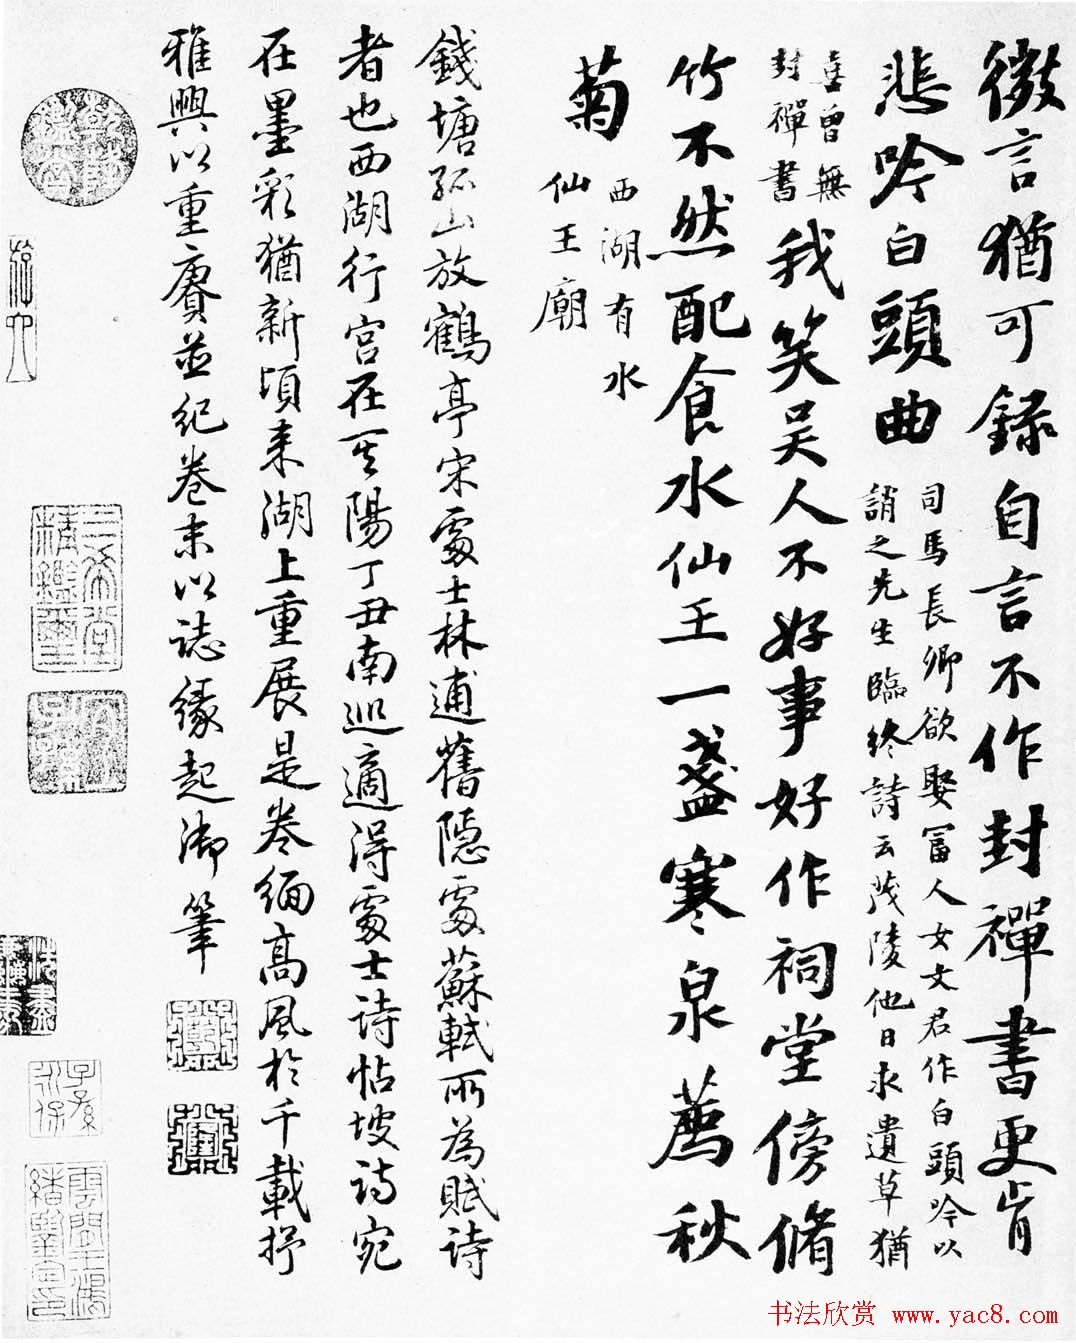 微言猶可録自言不作封禪書更肯
悲吟白頭曲
司馬長卿欲娶富人女文君作白頭吟以
誚之先生臨終詩云茂陵他日求遺草猶
喜曾無
封禪書
我笑吳人不好事好作祠堂傍脩
竹不然配食水仙王一盞寒泉薦秋
菊
西湖有水
仙王廟
錢塘孤山放鶴亭宋處士林逋舊隱處蘇軾所為賦詩
者也西湖行宮在其陽丁丑南巡適得處士詩帖坡詩宛
在墨彩猶新頃来湖上重展是卷緬高風於千載抒
雅興以重賡並紀卷末以誌緣起御筆
乾隆鑑賞
三希堂精鑑璽
宜子孫
子孫永保
雲間王鴻緒鑒定印
书法欣赏 www.yac8.com